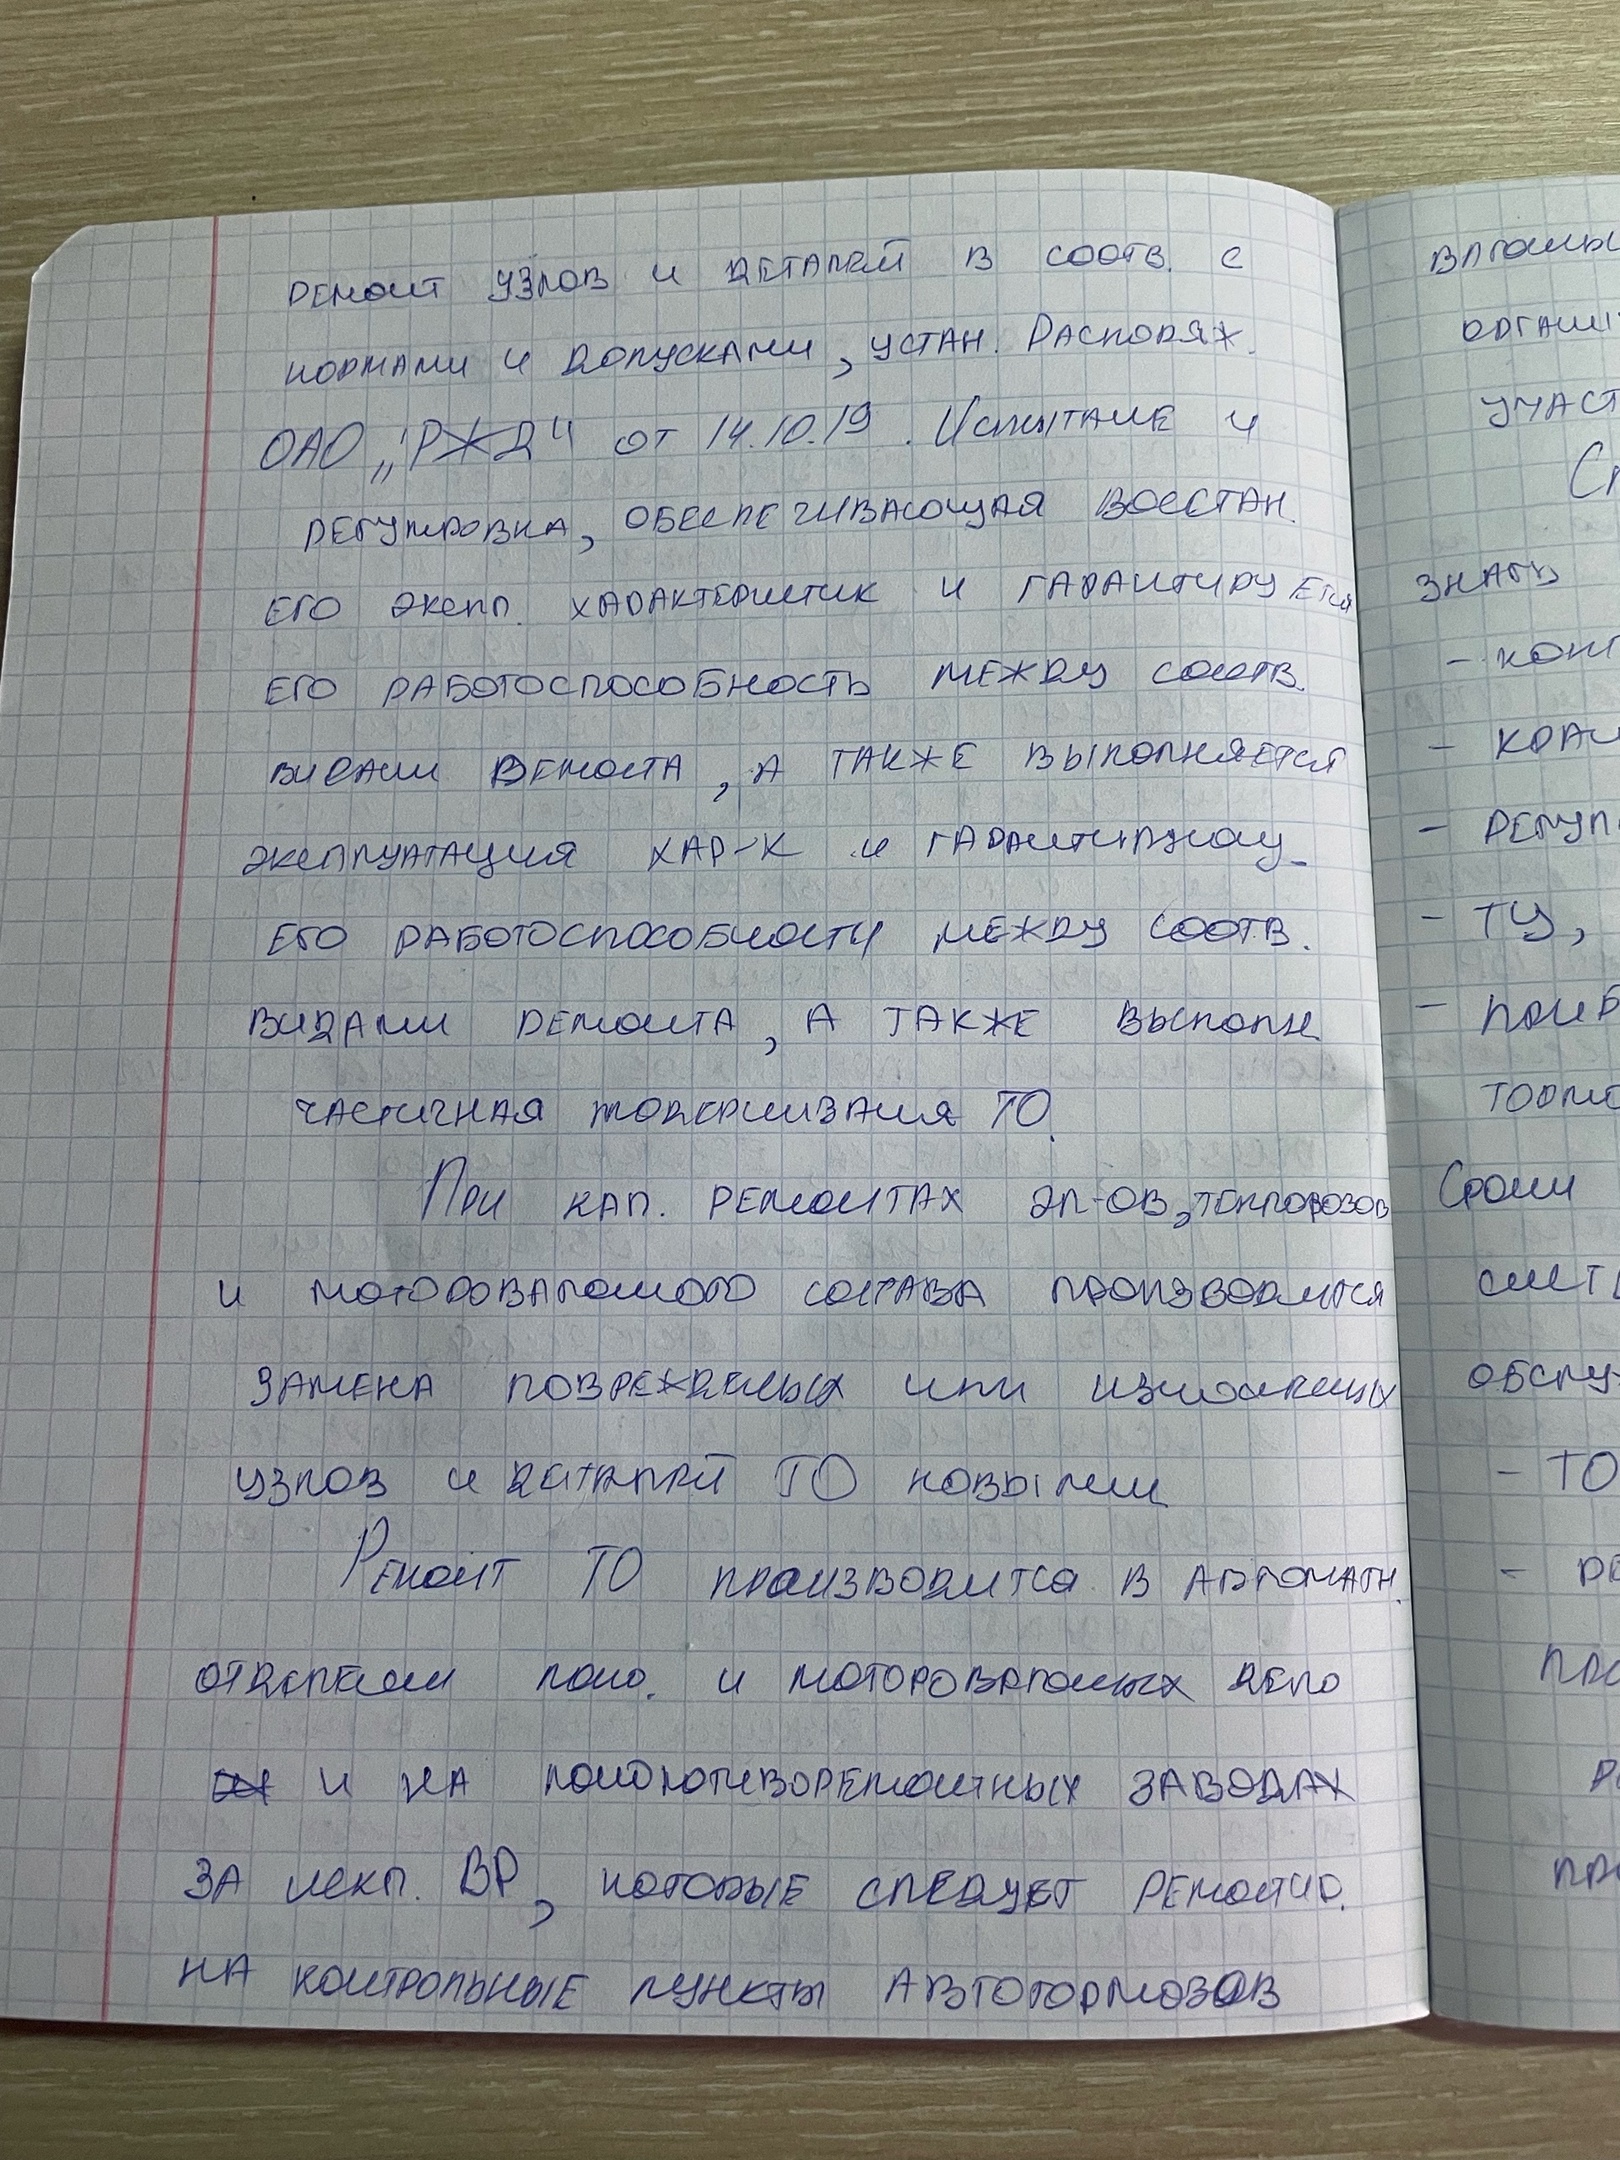 ремонт узлов и деталей в соотв. с
нормами и допусками, устан. Распоряж.
ОАО „РЖД" от 14.10.19. Испытание и
регулировка, обеспечивающая восстан.
его экспл. характеристик и гарантируется
его работоспособность между соотв.
видами ремонта, а также выполняется
эксплуатация хар-к и гарантирующ
его работоспособности между соотв.
видами ремонта, а также выполн
частичная модернизация ТО.
При кап. ремонтах эл-ов, тепловозов
и моторовагонного состава производится
замена поврежденных или изношенных
узлов и деталей ТО новыми
Ремонт ТО производится в автоматн.
отделении локо. и моторовагонных депо
и на локомотиворемонтных заводах
за искл. ВР, которые следует ремонтир.
на контрольные пункты автотормозов
вагонны
органи
участ
Ст
знать
- конт
- кран
- регул
- ТЦ,
- приб
тормо
Сроки
систе
обслу
- ТО
- ре
про
ре
при